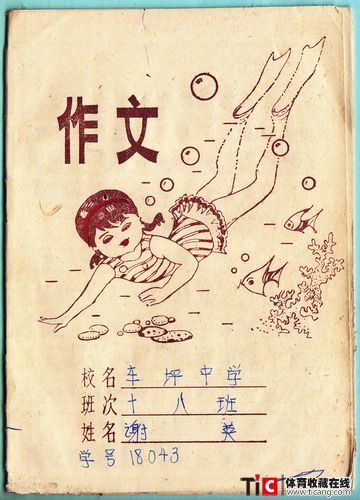 作文
校名 车坪中学
班次 十八班
姓名 谢英
学号 18043
TiC 体育收藏在线
www.ticang.com